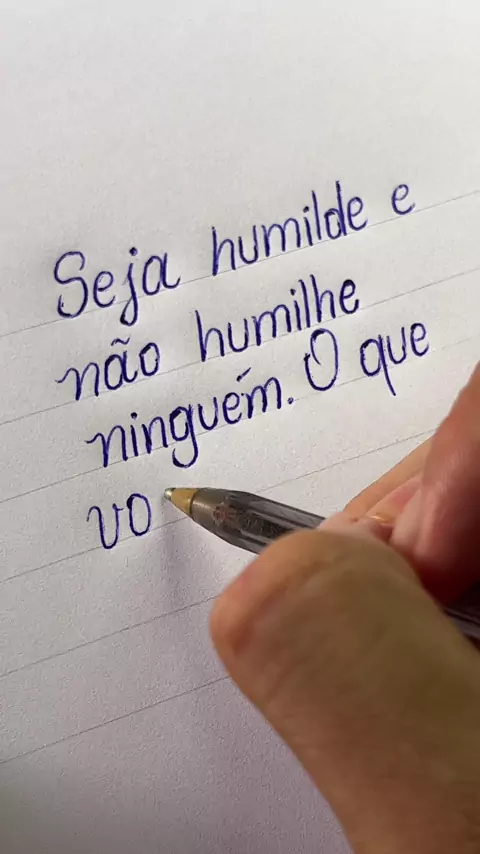 Seja humilde e
não humilhe
ninguém. O que
vo